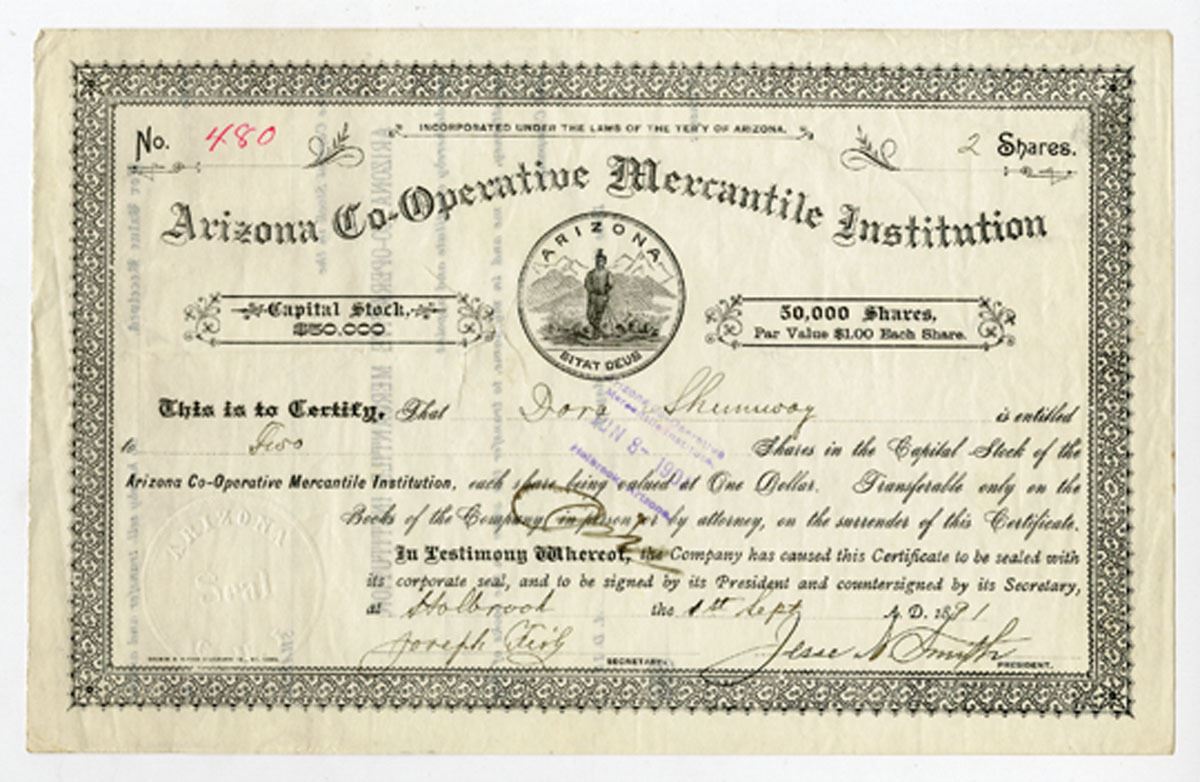 INCORPORATED UNDER THE LAWS OF THE TER'Y OF ARIZONA.
No. 480
2 Shares.
Arizona Co-Operative Mercantile Institution
ARIZONA
SITAT DEUS
Capital Stock,
$50,000
50,000 Shares,
Par Value $1.00 Each Share.
This is to Certify, That Dora Shumway is entitled
to Two Shares in the Capital Stock of the
Arizona Co-Operative Mercantile Institution, each share being valued at One Dollar. Transferable only on the
Books of the Company in person or by attorney, on the surrender of this Certificate.
In Testimony Whereof, the Company has caused this Certificate to be sealed with
its corporate seal, and to be signed by its President and countersigned by its Secretary,
at Holbrook the 1st Sept A. D. 1891
Joseph Jesse N Smith
SECRETARY.
PRESIDENT.
ARIZONA
Seal
Arizona Co-Operative
Mercantile Institution
JUN 8- 190
Holbrook, Arizona